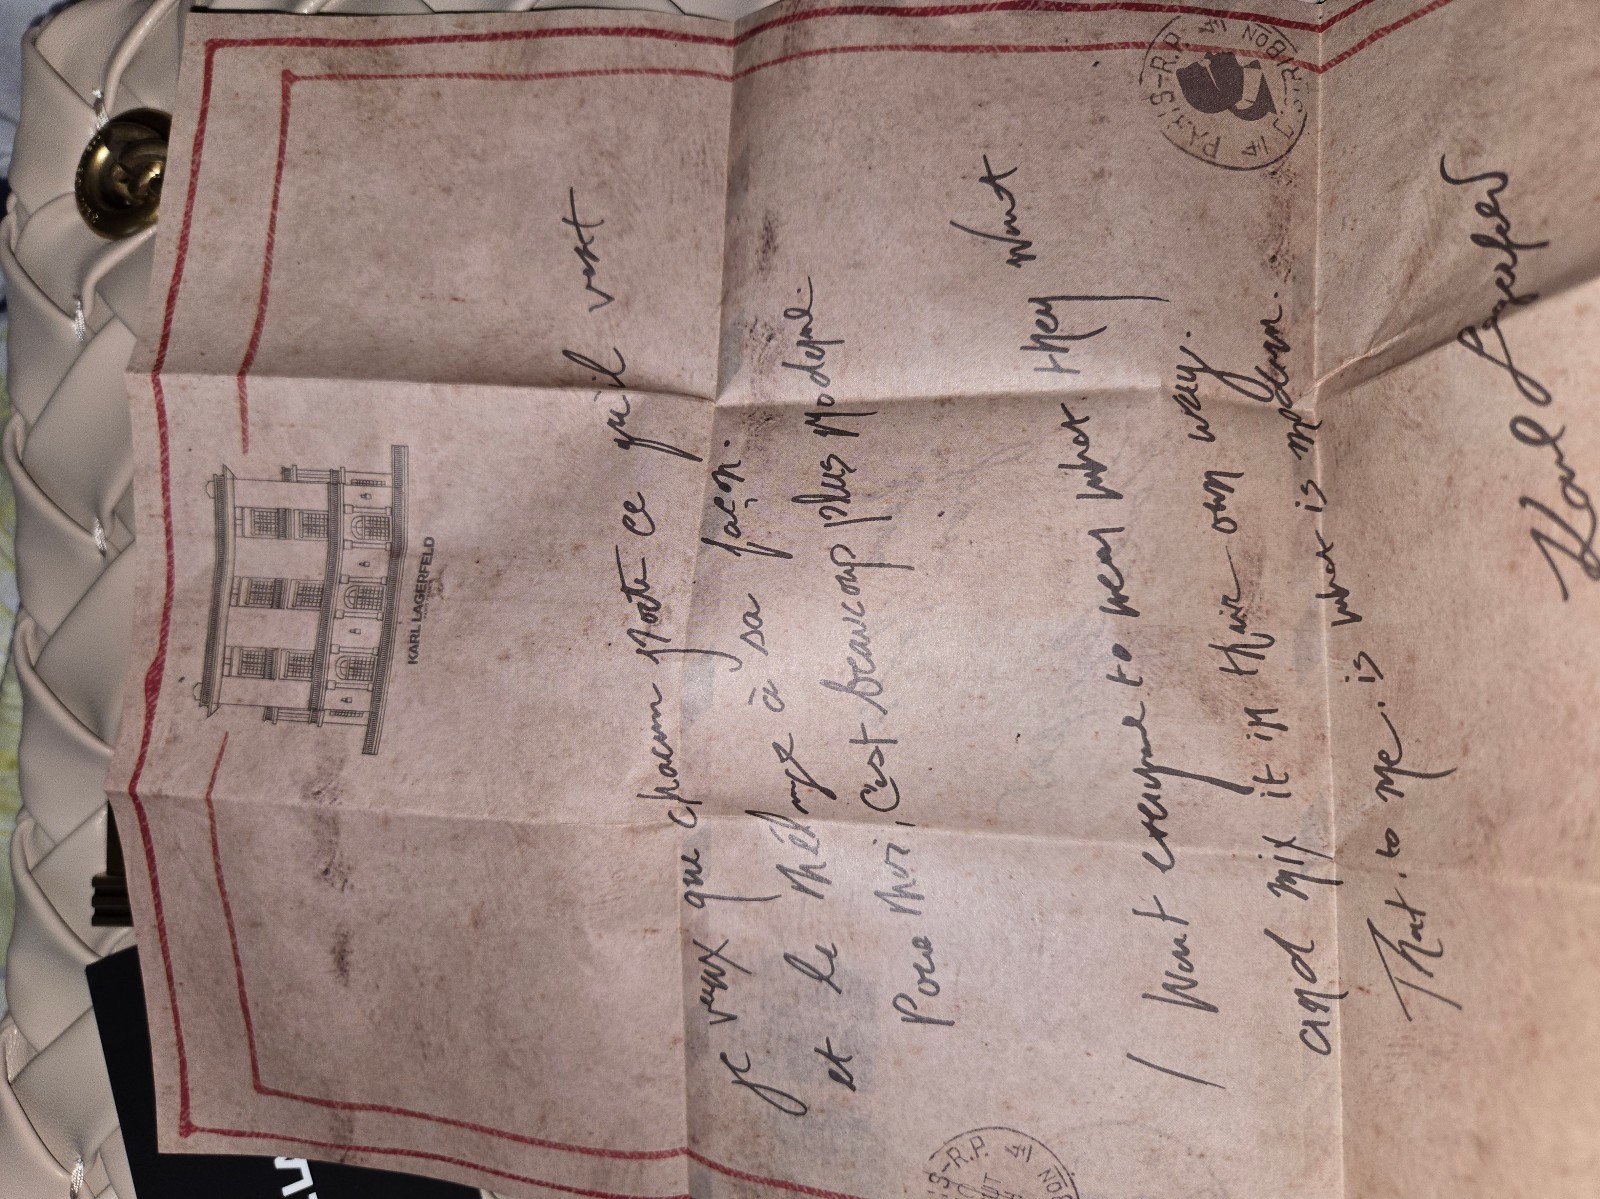 KARL LAGERFELD
Je veux que chacun porte ce qu'il veut
et le mélange à sa façon.
Pour moi, C'est beaucoup plus Moderne.
I want everyone to wear what they want
and mix it in their own way.
That. to me. is what is modern.
Karl Lagerfeld
PARIS-R.P.
S-R.P.